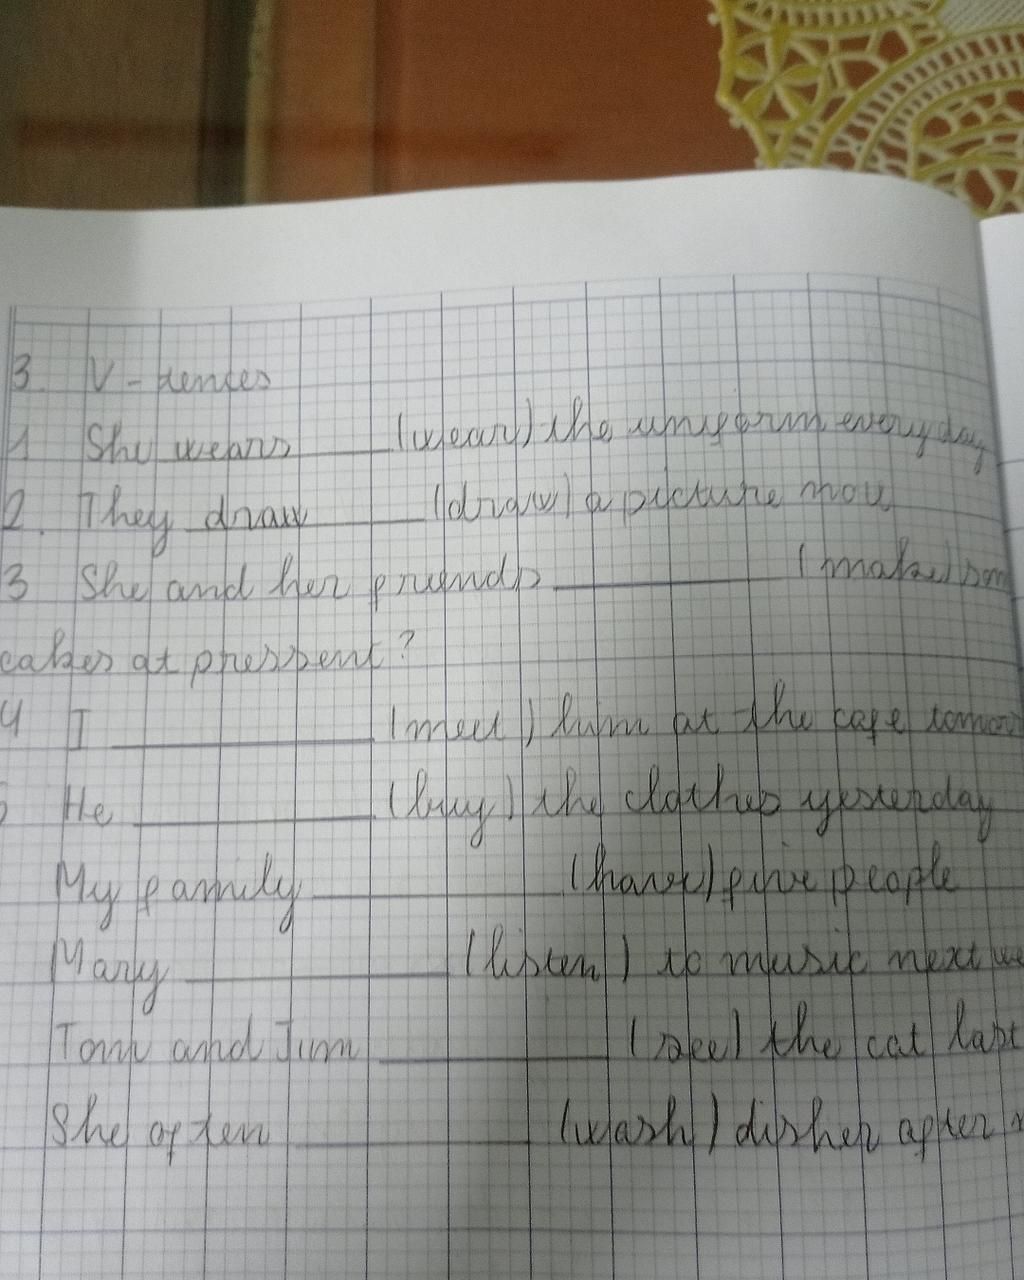 3. V - tences
1 She wears ____ (wear) the uniform everyday
2. They draw ____ (draw) a picture now
3 She and her friends ____ (make) som
cakes at pressent?
4 I ____ (meet) him at the cafe tomor
5 He ____ (buy) the clothes yesterday
My family ____ (have) five people
Mary ____ (listen) to music next we
Tom and Jim ____ (see) the cat last
She often ____ (wash) dishes after